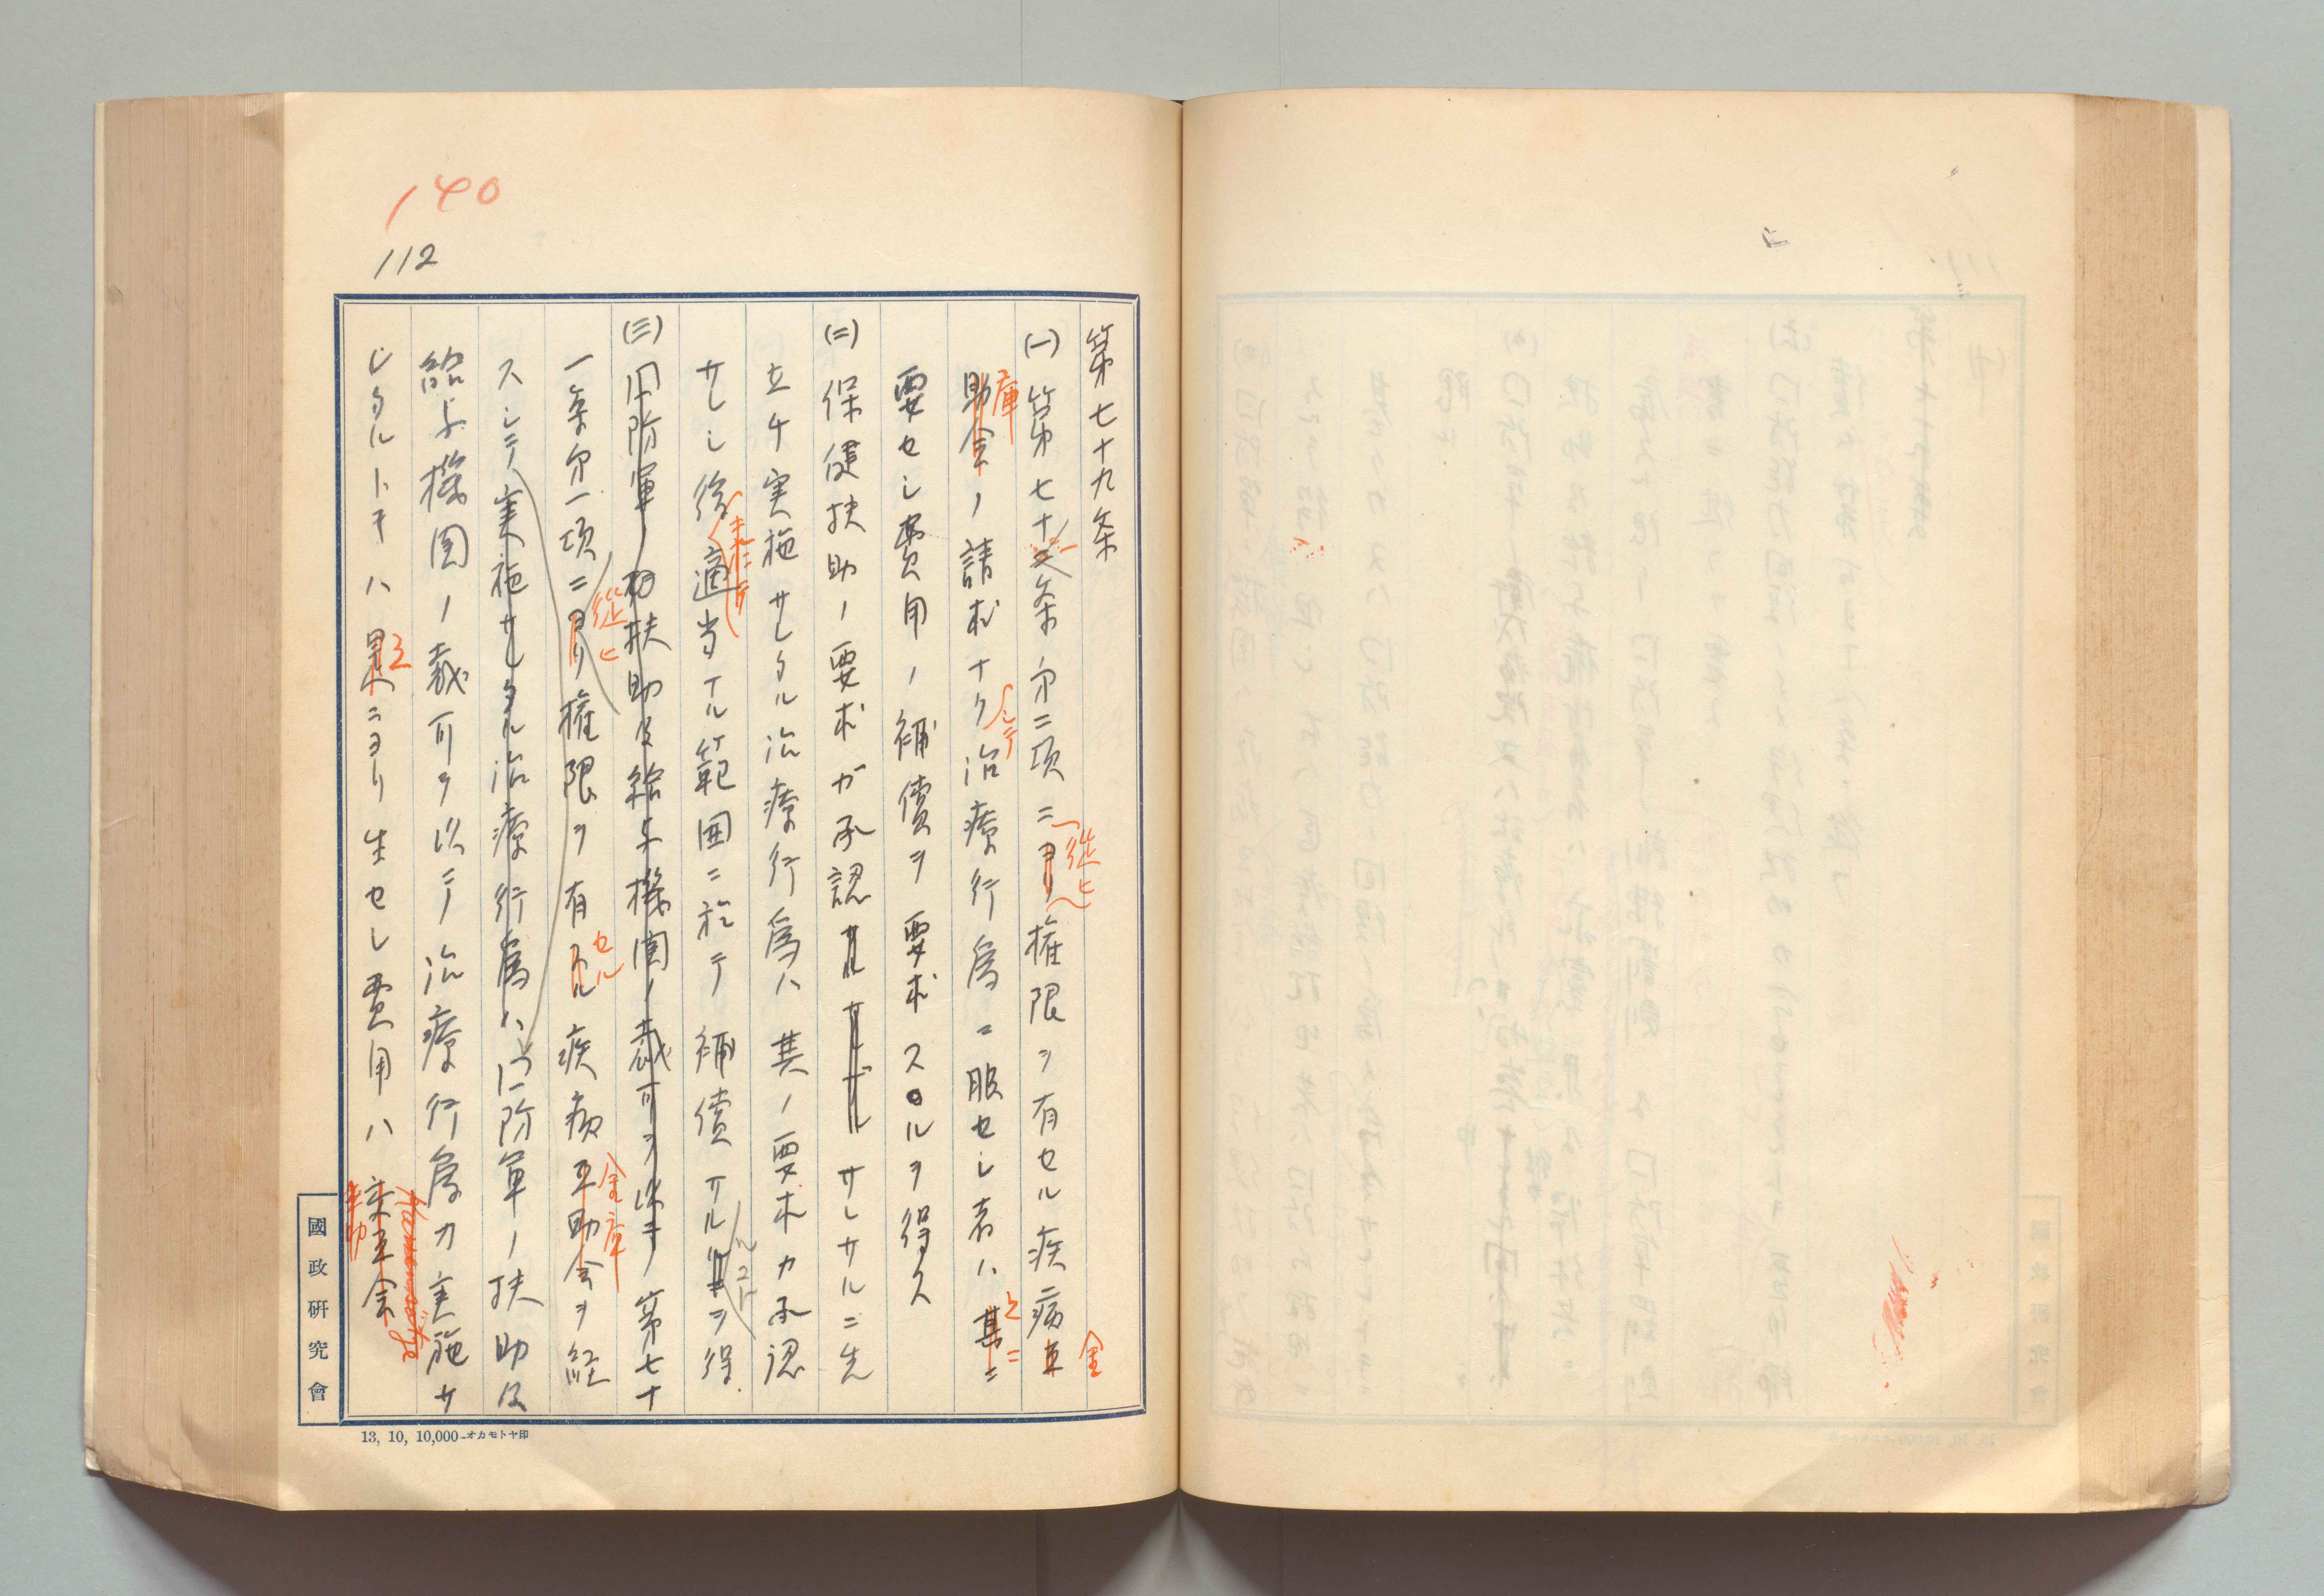 140
112
第七十九条
(一)第七十条第二項ニヨリ権限ヲ有セル疾病互
従ヒ
金
助会ノ請求ナク治療行為ニ服セシ者ハ其ニ
庫
シテ
要セシ費用ノ補償ヲ要求スルヲ得ス
(二)保健扶助ノ要求ガ承認サレサルニ先
立チ実施サレタル治療行為ハ其ノ要求カ承認
サレシ後適当ナル範囲ニ於テ補償サルヲ得
ルコト
(三)国防軍ノ扶助及給与機関ノ裁可ヲ第七十
一条第一項ニヨリ権限ヲ有スル疾病互助会ヲ経
従ヒ
セル
金庫
スシテ実施サレタル治療行為ハ国防軍ノ扶助及
給与機関ノ裁可ヲ以テ治療行為カ実施サ
レタルトキハ異ニヨリ生セシ費用ハ互会
國政研究會
13, 10, 10,000—オカモトヤ印